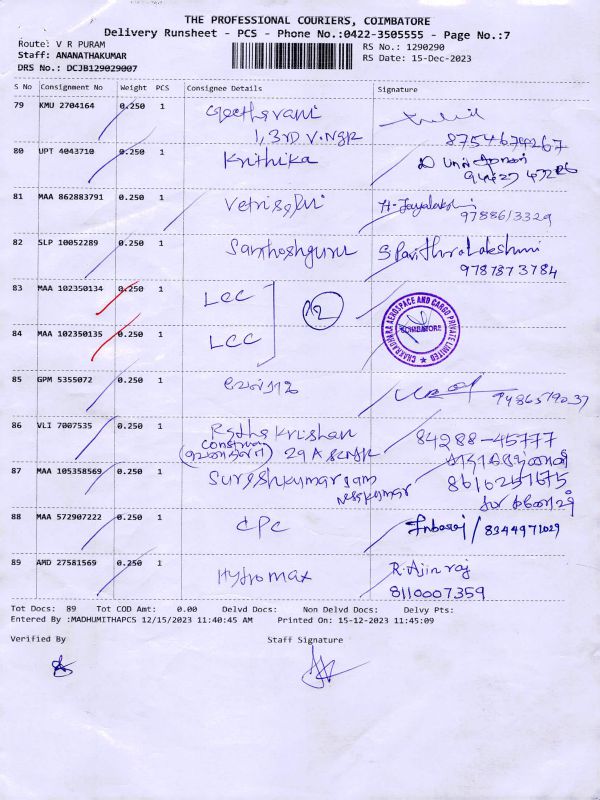 THE PROFESSIONAL COURIERS, COIMBATORE
Delivery Runsheet - PCS - Phone No.:0422-3505555 - Page No.:7
Route: V R PURAM
RS No.: 1290290
Staff: ANANATHAKUMAR
RS Date: 15-Dec-2023
DRS No.: DCJB129029007
S No Consignment No Weight PCS Consignee Details Signature
79 KMU 2704164 0.250 1 Geetha vani
1, 3rd V.Ngr 8754674267
80 UPT 4043710 0.250 1 Krithika
81 MAA 862883791 0.250 1 Vetriselvi H-Jayalakshmi
9788613329
82 SLP 10052289 0.250 1 Santhoshguru S Pavithra Lakshmi
9787873784
83 MAA 102350134 0.250 1 LCC
12
CHAKRADHARA AEROSPACE AND CARGO PRIVATE LIMITED
COIMBATORE
84 MAA 102350135 0.250 1 LCC
85 GPM 5355072 0.250 1
86 VLI 7007535 0.250 1 Rathakrishan 84288-45777
29A
87 MAA 105358569 0.250 1 Sureshkumar
88 MAA 572907222 0.250 1 CPC Inbaraj / 8344971029
89 AMD 27581569 0.250 1 Hydromax R. Ajin raj
8110007359
Tot Docs: 89 Tot COD Amt: 0.00 Delvd Docs: Non Delvd Docs: Delvy Pts:
Entered By :MADHUMITHAPCS 12/15/2023 11:40:45 AM Printed On: 15-12-2023 11:45:09
Verified By Staff Signature